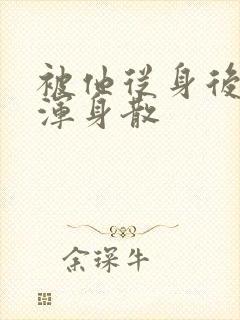 被他从身後
渾身散
余琛牛